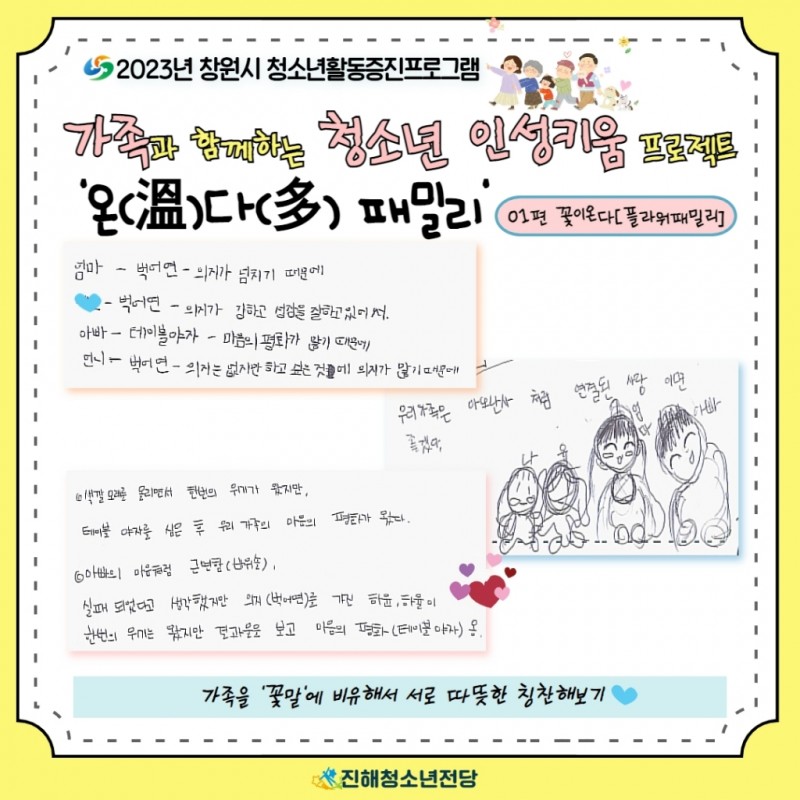 2023년 창원시 청소년활동증진프로그램
가족과 함께하는 청소년 인성키움 프로젝트
'온(溫)다(多) 패밀리'
01편 꽃이온다[플라워패밀리]
엄마 - 벅어연 - 의지가 넘치기 때문에
- 벅어연 - 의지가 강하고 섭감을 잘하고있어서.
아빠 - 테이블야자 - 마음의 평화가 많기 때문에
언니 - 벅어연 - 의지는 없지만 하고 싶은 것에 의지가 많기 때문에
우리가족은 처럼 연결된 사랑 이면
좋겠다,
나 율 엄마 아빠
①색깔 모래를 올리면서 한번의 위기가 왔지만,
테이블 야자를 심은 후 우리 가족의 마음의 평화가 왔다.
②아빠의 마음처럼 근면함(바위솔),
실패 되었다고 생각했지만 의지(벅어연)를 가진 하윤, 하율이
한번의 위기는 왔지만 결과물을 보고 마음의 평화(테이블야자) 용.
가족을 '꽃말'에 비유해서 서로 따뜻한 칭찬해보기
진해청소년전당